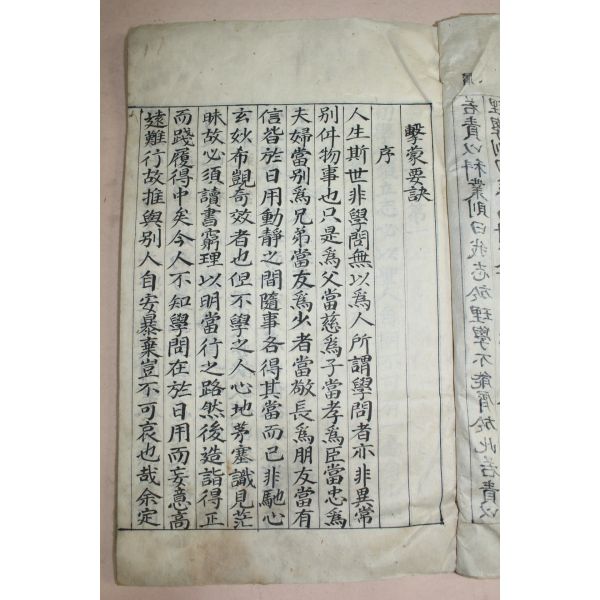 若責以科業則曰我志於理學不能屑於此若責以
擊蒙要訣
序
人生斯世非學問無以爲人所謂學問者亦非異常
別件物事也只是爲父當慈爲子當孝爲臣當忠爲
夫婦當別爲兄弟當友爲少者當敬長爲朋友當有
信皆於日用動靜之間隨事各得其當而已非馳心
玄妙希覬奇效者也但不學之人心地茅塞識見茫
昧故必須讀書窮理以明當行之路然後造詣得正
而踐履得中矣今人不知學問在於日用而妄意高
遠難行故推與別人自安暴棄豈不可哀也哉余定